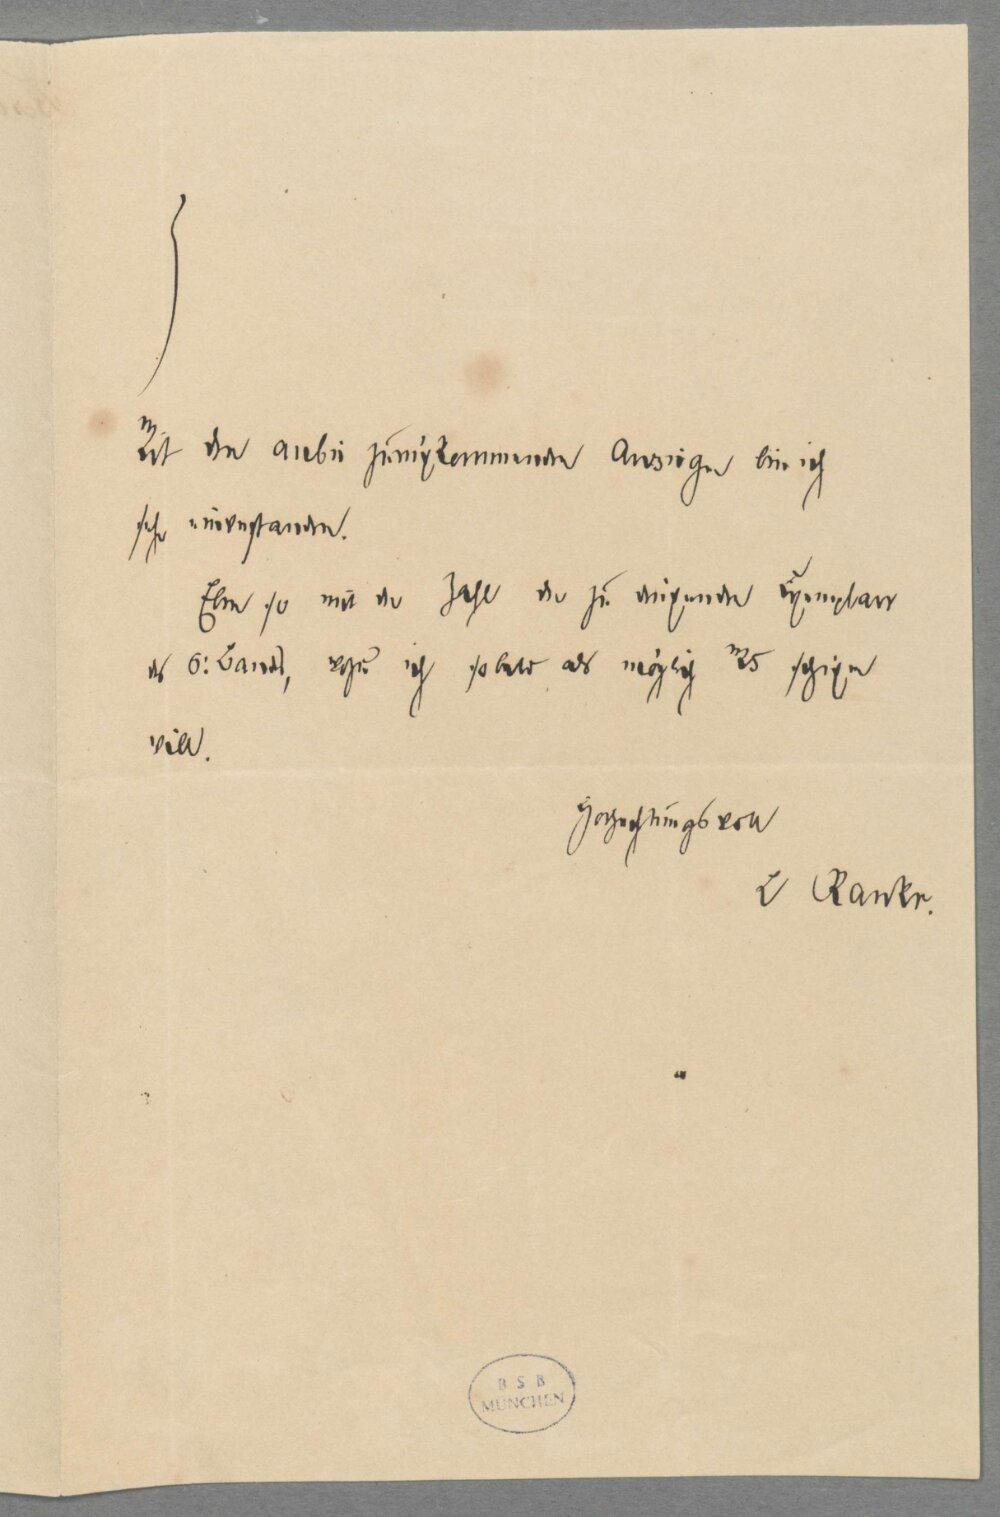 Mit den anbei zurückkommenden Anzeigen bin ich
sehr einverstanden.
Eben so mit der Zahl der zu druckenden Exemplare
des 6. Bandes, wozu ich sobald als möglich schicken
will.
Hochachtungsvoll
L Ranke.
B S B
MÜNCHEN